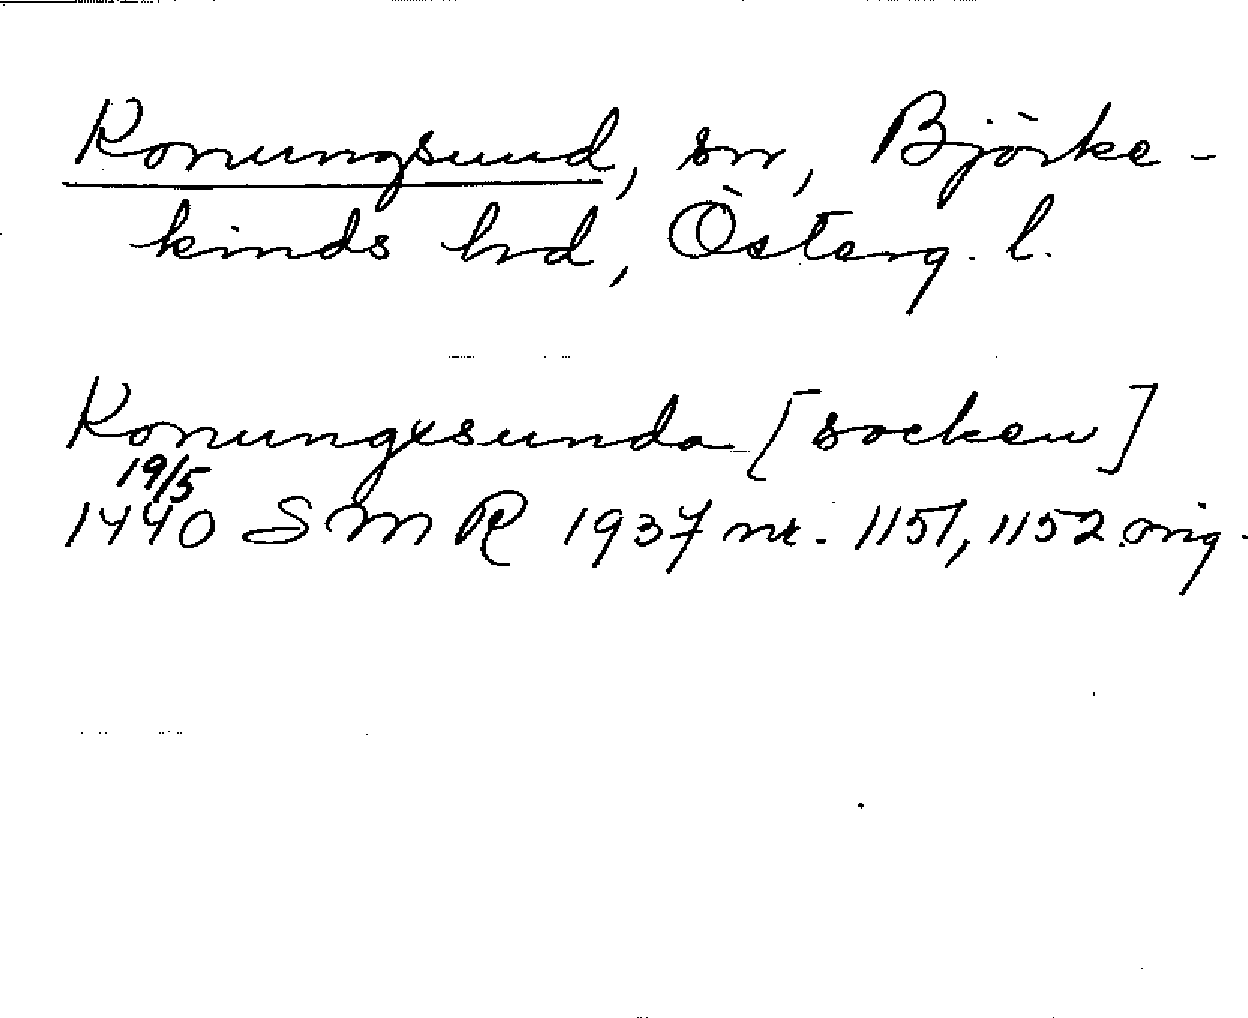 Konungsund, sn, Björke-
kinds hd, Österg. l.
Konungxsunda [socken]
19/5
1440 SMR 1937 nr. 1151, 1152 orig.